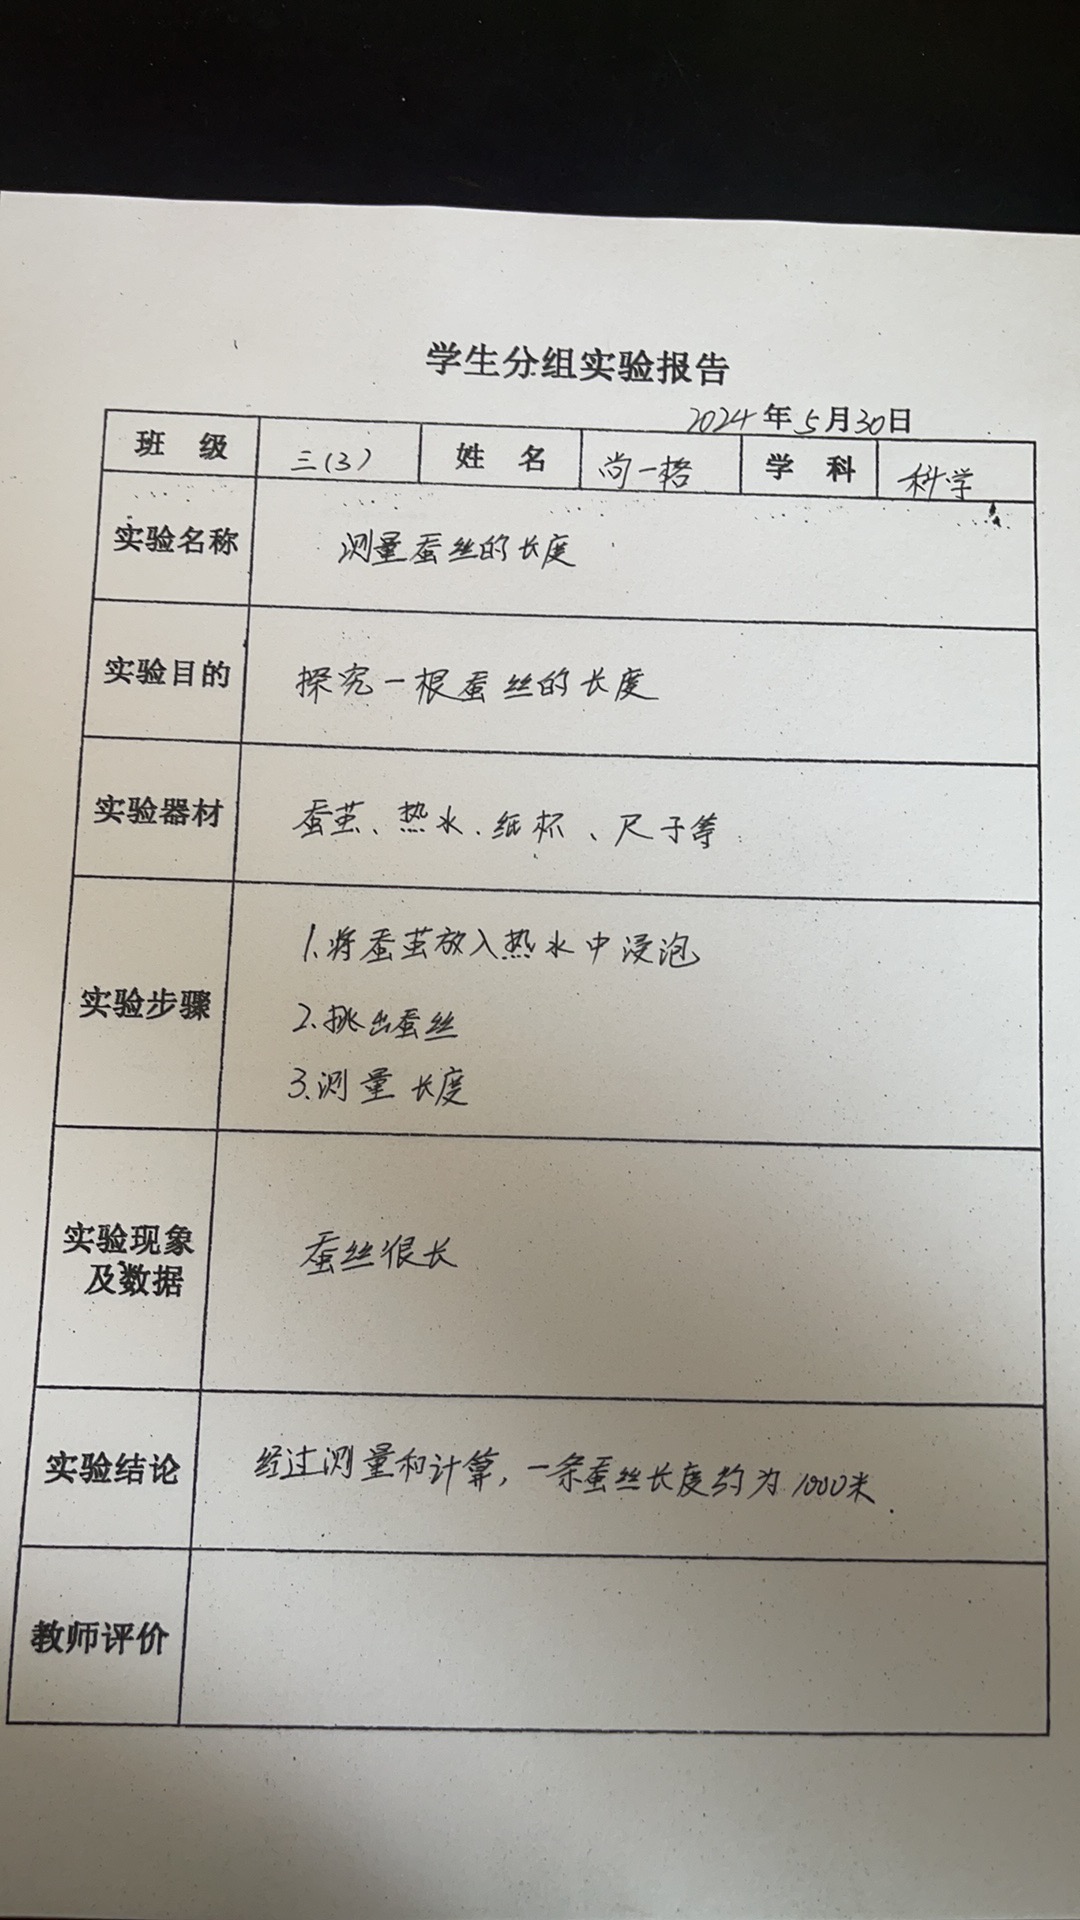 学生分组实验报告
2024年5月30日
班 级 三(3) 姓 名 尚一格 学 科 科学
实验名称 测量蚕丝的长度
实验目的 探究一根蚕丝的长度
实验器材 蚕茧、热水、纸杯、尺子等
实验步骤 1.将蚕茧放入热水中浸泡
2.挑出蚕丝
3.测量长度
实验现象
及数据 蚕丝很长
实验结论 经过测量和计算,一条蚕丝长度约为1000米.
教师评价